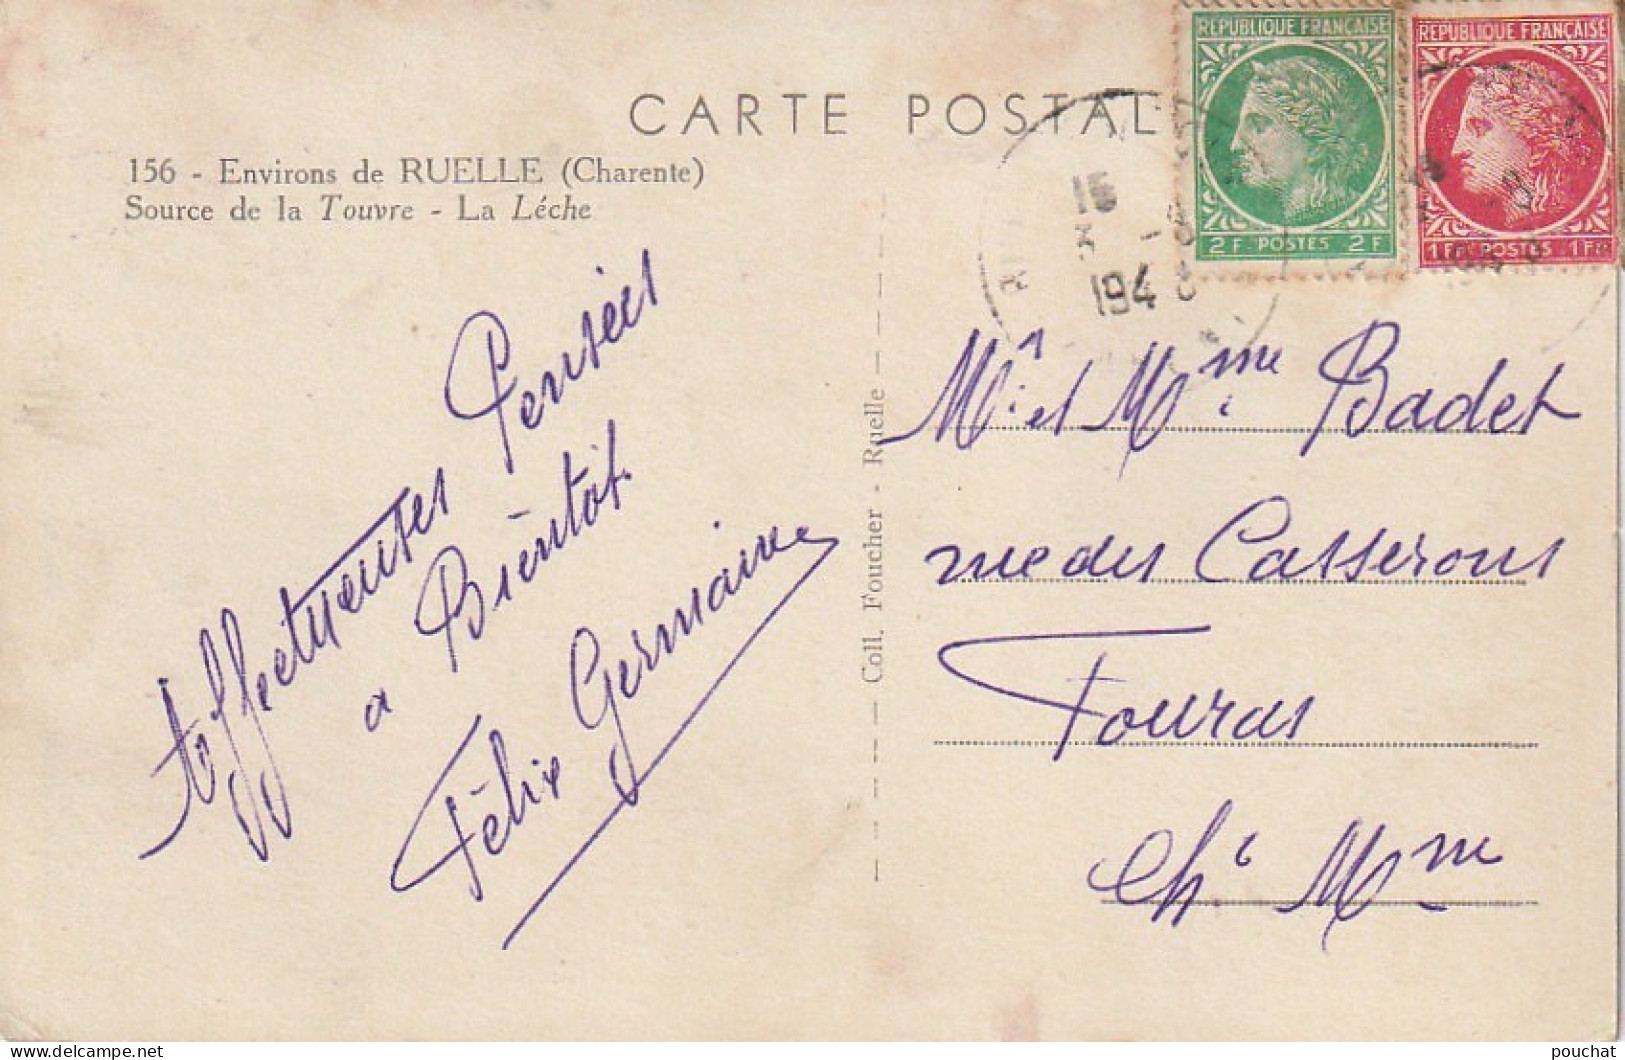 CARTE POSTAL
156 - Environs de RUELLE (Charente)
Source de la Touvre - La Léche
REPUBLIQUE FRANÇAISE
2 F POSTES 2 F
REPUBLIQUE FRANÇAISE
1 FR POSTES 1 FR
194
Affectueuses Pensées
a Bientôt
Félix Germaine
Coll. Foucher - Ruelle
Mr et Mme Badet
rue des Casserons
Fouras
Ch. Mme
pouchat